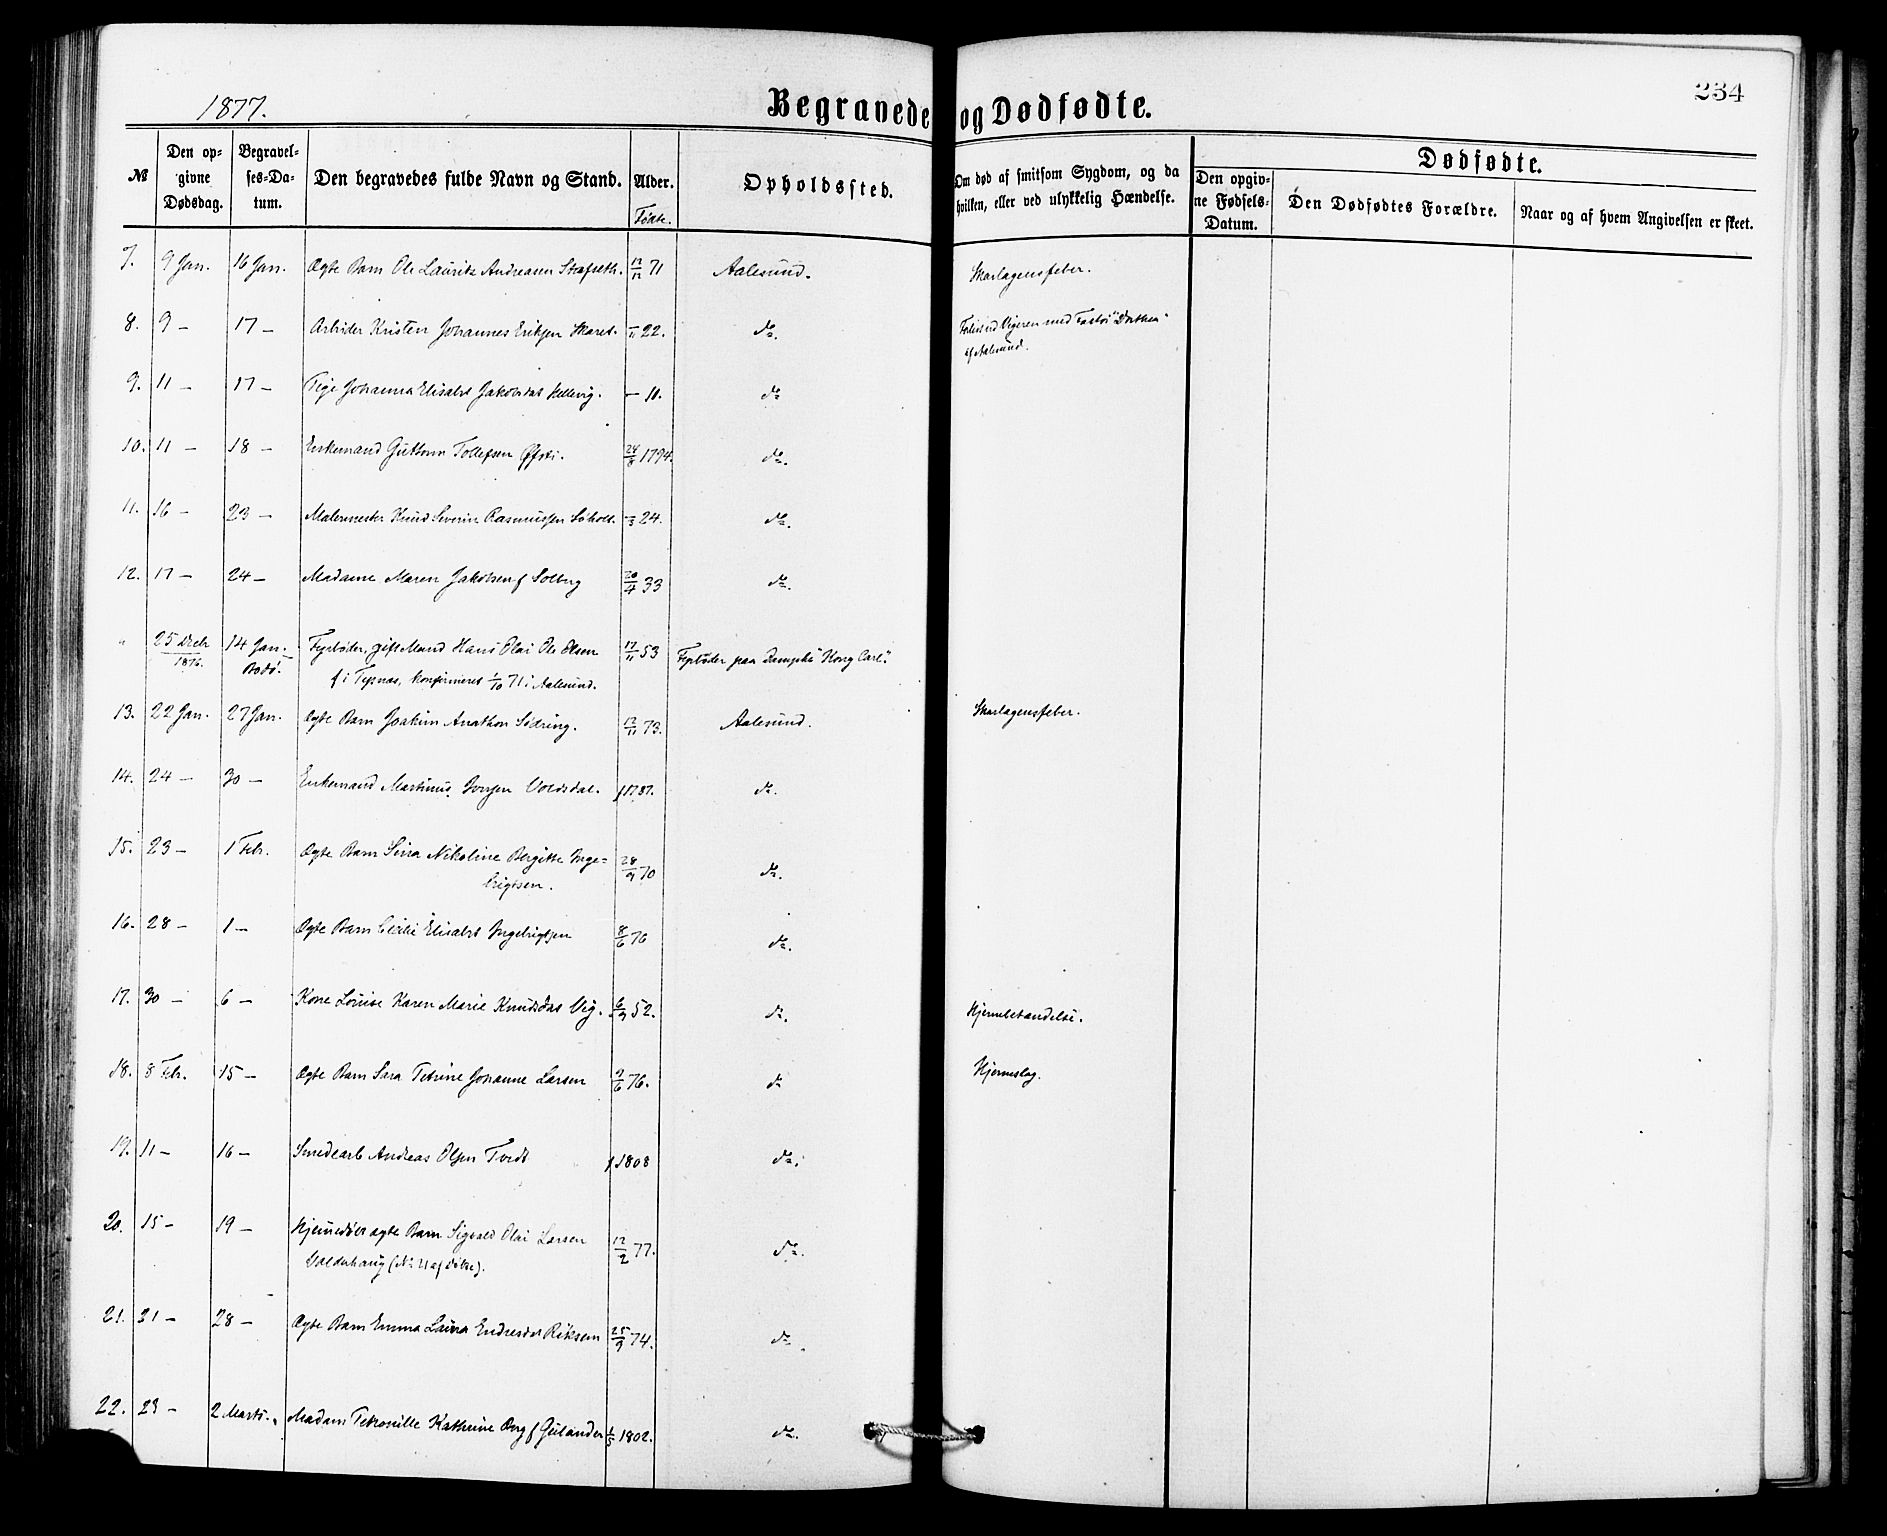 1877.
Begravede og Dødfødte.
234
№ | Den opgivne Dødsdag. | Begravelses-Datum. | Den begravedes fulde Navn og Stand. | Alder. Fødte. | Opholdssted. | Om død af smitsom Sygdom, og da hvilken, eller ved ulykkelig Hændelse. | Dødfødte. | Den opgivne Fødsels-Datum. | Den Dødfødtes Forældre. | Naar og af hvem Angivelsen er skeet.
7. 9 Jan. 16 Jan. Ægte Barn Ole Laurits Andreasen Strafseth. 12/12 71 Aalesund. Skarlagensfeber.
8. 9 — 17 — Arbeider Kristen Johannes Eriksen Skaret. —/11 22. do. Forlist ved Vigeren med Fartøi "Dorthea"
af Aalesund.
9. 11 — 17 — Pige Johanna Elisabet Jakobsdat Hellevig. — 11. do
10. 11 — 18 — Enkemand Guthorm Tollefsen Øfsti. 24/8 1794. do.
11. 16 — 23 — Malermester Knud Severin Rasmussen Søholt. —/3 24. do.
12. 17 — 24 — Madame Maren Jakobsen f Solberg 20/4 33 do.
" 25 Decbr 1876. 14 Jan. Bodø. Fyrbøder, gift Mand Hans Olai Ols Olsen 17/11 53 Fyrbøder paa Dampsk "Kong Carl".
f i Tysnæs, konfirmeret 1/10 71 i Aalesund.
13. 22 Jan. 27 Jan. Ægte Barn Joakim Anathon Södring. 12/11 73. Aalesund. Skarlagensfeber.
14. 24 — 30 — Enkemand Martinus Jonsen Voldsdal. f 1787. do.
15. 23 — 1 Febr. Ægte Barn Sina Nikoline Bergitte Inge=
brigtsen. 28/9 70 do.
16. 28 — 1 — Ægte Barn Cecilie Elisabet Ingebrigtsen 8/6 76 do.
17. 30 — 6 — Kone Louise Karen Marie Knudsdat Vig. 6/9 52. do. Hjernebetændelse.
18. 8 Febr. 15 — Ægte Barn Sara Petrine Johanne Larsen 9/6 76. do Hjerneslag.
19. 11 — 16 — Smedearb Andreas Olsen Tvedt f 1808 do.
20. 15 — 19 — Hjemmedøbt ægte Barn Sigvald Olai Larsen
Valderhaug (No 21 af Døbte). 12/2 77. do.
21. 21 — 28 — Ægte Barn Emma Laura Endresdat Röksem 25/9 74. do.
22. 23 — 2 Marts. Madam Petronille Kathrine Berg f Geilander 1/5 1802. do.